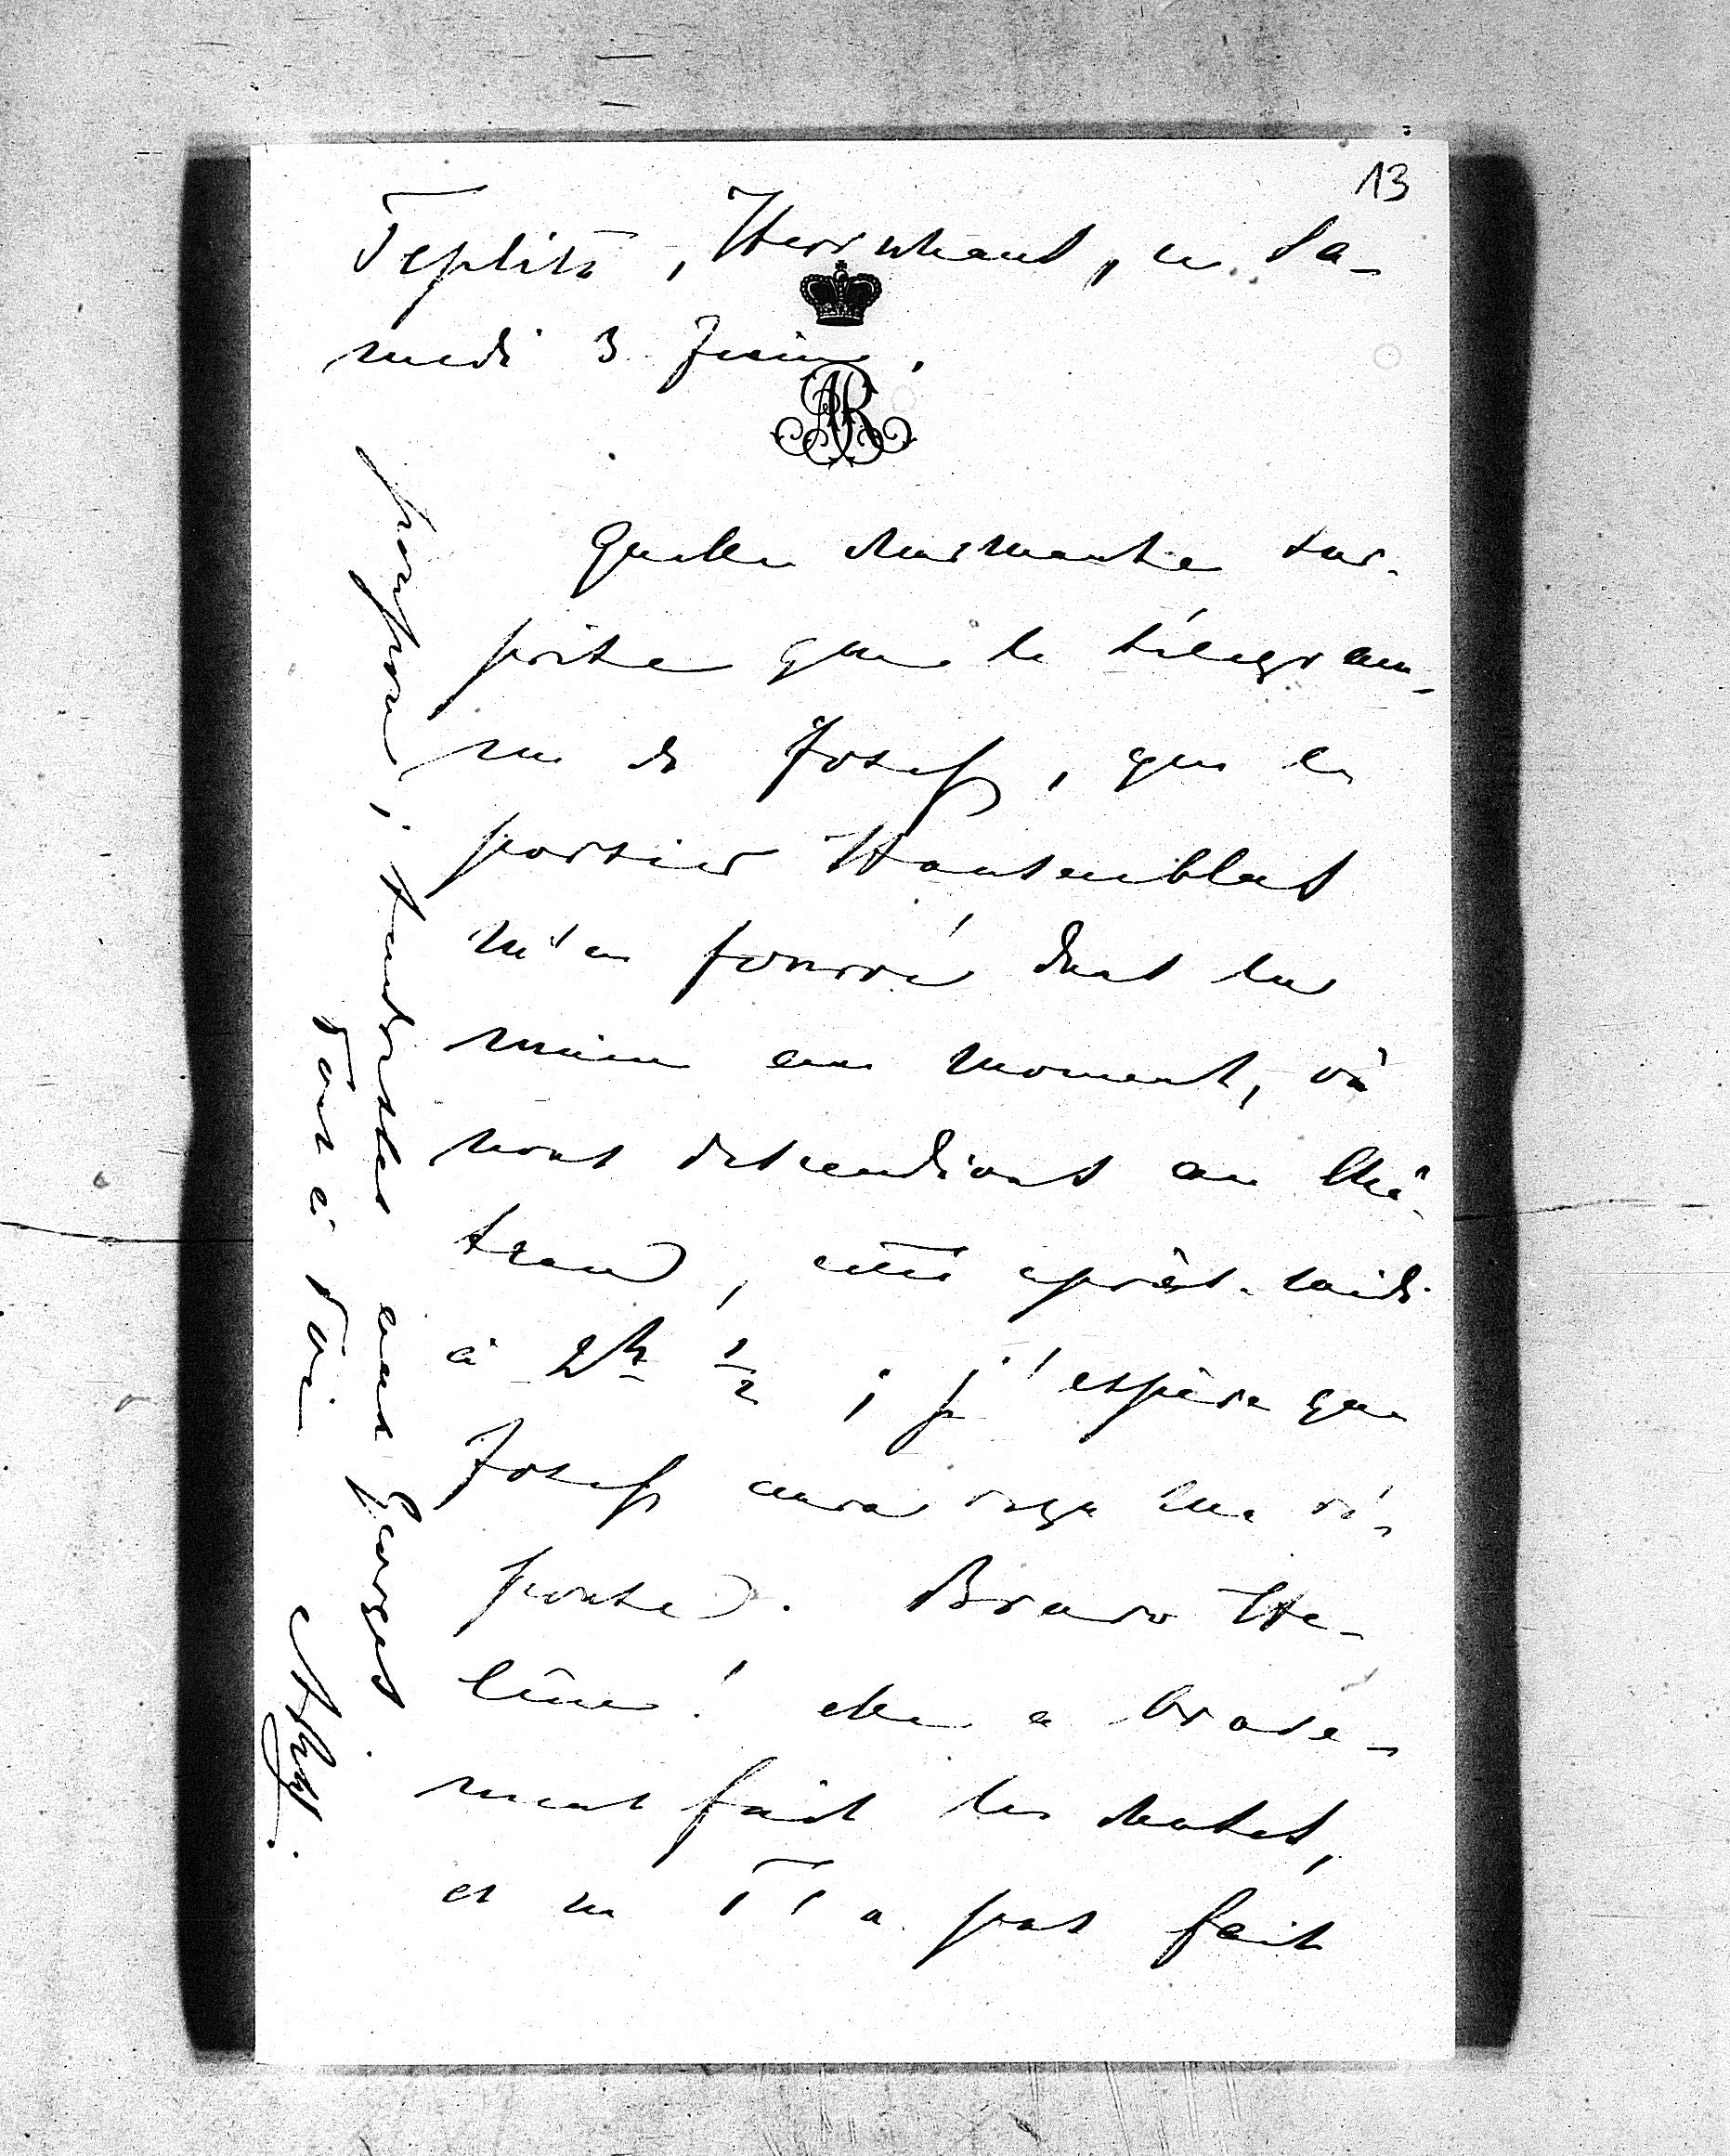 13
Teplitz, Herrnhaus, ce Sa-
medi 3 Juin.
AR
Quelle charmante sur-
prise que le télégram-
me de Josef, que le
portier Hausenblas
m'a fourré dans la
main au moment, où
nous descendions au châ-
teau, cette après-midi
à 2h 1/2 ; j'espère que
Josef aura reçu ma ré-
ponse. Bravo Hé-
lène! elle a brave-
ment fait les choses,
et ne t'a pas fait
Georges
tout à toi